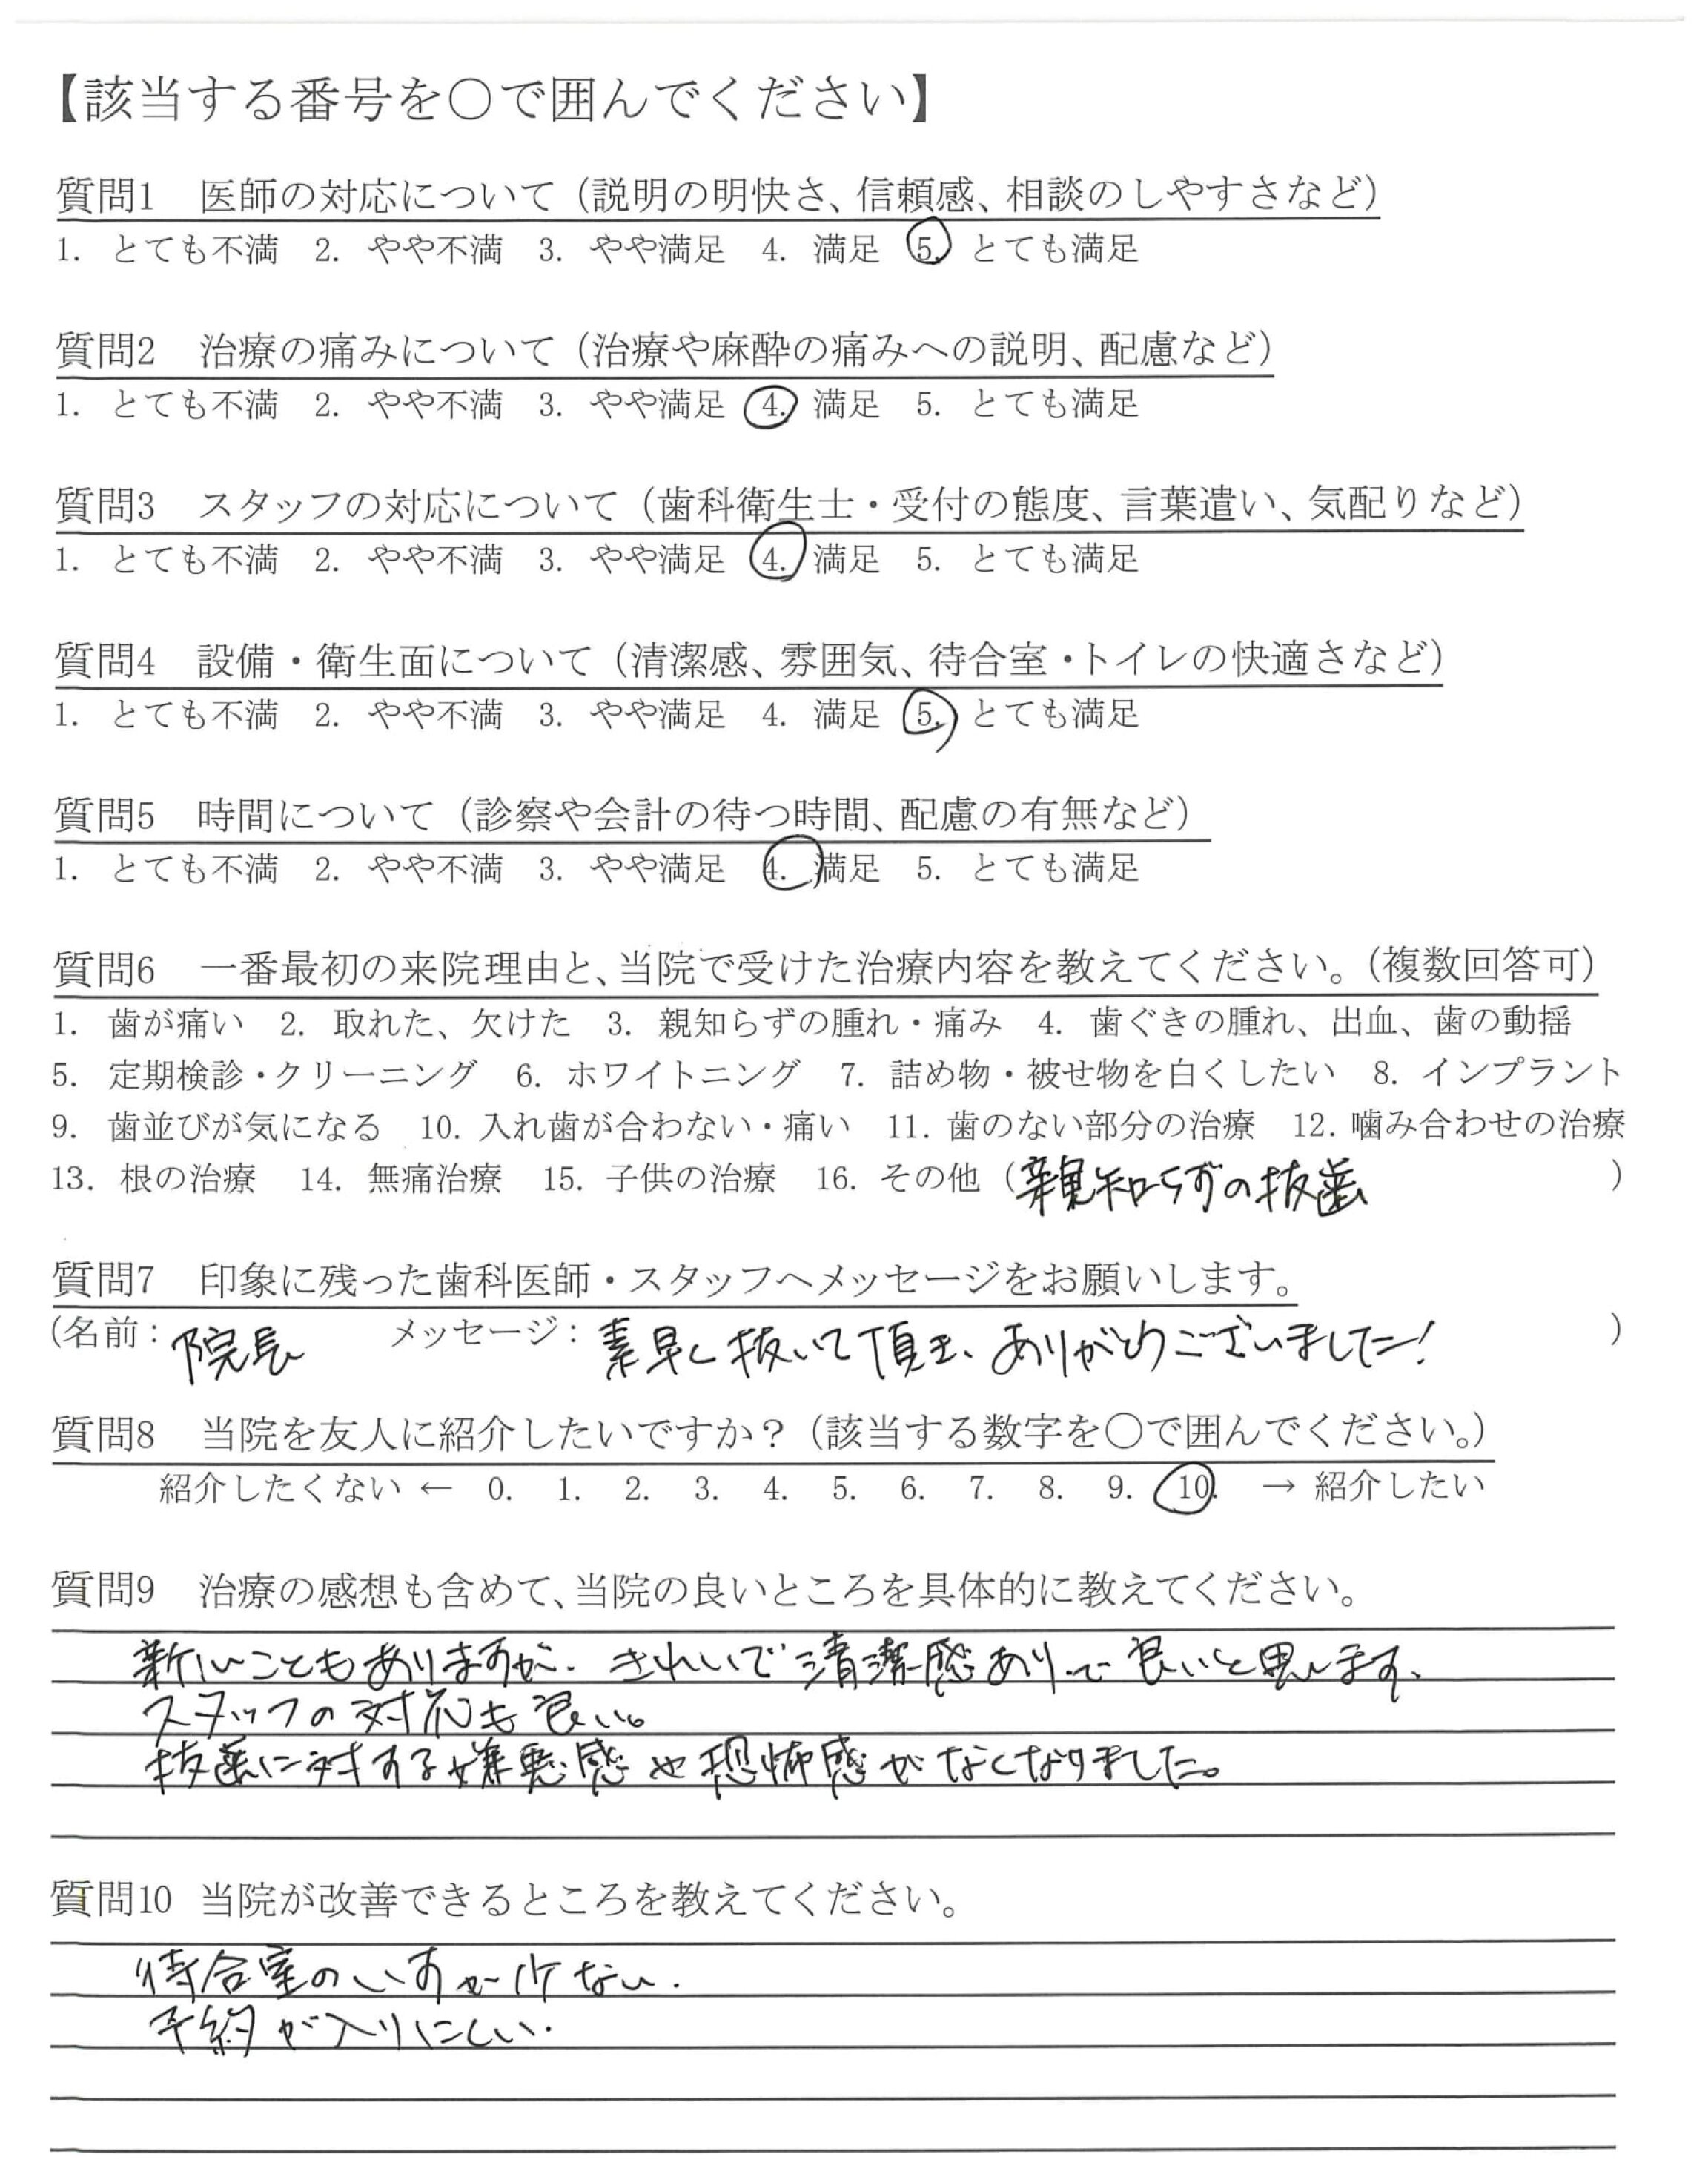 【該当する番号を○で囲んでください】
質問1　医師の対応について（説明の明快さ、信頼感、相談のしやすさなど）
1. とても不満　2. やや不満　3. やや満足　4. 満足　5. とても満足
質問2　治療の痛みについて（治療や麻酔の痛みへの説明、配慮など）
1. とても不満　2. やや不満　3. やや満足　4. 満足　5. とても満足
質問3　スタッフの対応について（歯科衛生士・受付の態度、言葉遣い、気配りなど）
1. とても不満　2. やや不満　3. やや満足　4. 満足　5. とても満足
質問4　設備・衛生面について（清潔感、雰囲気、待合室・トイレの快適さなど）
1. とても不満　2. やや不満　3. やや満足　4. 満足　5. とても満足
質問5　時間について（診察や会計の待つ時間、配慮の有無など）
1. とても不満　2. やや不満　3. やや満足　4. 満足　5. とても満足
質問6　一番最初の来院理由と、当院で受けた治療内容を教えてください。（複数回答可）
1. 歯が痛い　2. 取れた、欠けた　3. 親知らずの腫れ・痛み　4. 歯ぐきの腫れ、出血、歯の動揺
5. 定期検診・クリーニング　6. ホワイトニング　7. 詰め物・被せ物を白くしたい　8. インプラント
9. 歯並びが気になる　10. 入れ歯が合わない・痛い　11. 歯のない部分の治療　12. 噛み合わせの治療
13. 根の治療　14. 無痛治療　15. 子供の治療　16. その他（親知らずの抜歯　）
質問7　印象に残った歯科医師・スタッフへメッセージをお願いします。
（名前：院長　メッセージ：素早く抜いて頂き、ありがとうございました！　）
質問8　当院を友人に紹介したいですか？（該当する数字を○で囲んでください。）
紹介したくない ← 0. 1. 2. 3. 4. 5. 6. 7. 8. 9. 10. → 紹介したい
質問9　治療の感想も含めて、当院の良いところを具体的に教えてください。
新しいこともありますが、きれいで清潔感ありで良いと思います、
スタッフの対応も良い。
抜歯に対する嫌悪感や恐怖感がなくなりました。
質問10 当院が改善できるところを教えてください。
待合室のいすが少ない.
予約が入りにくい.